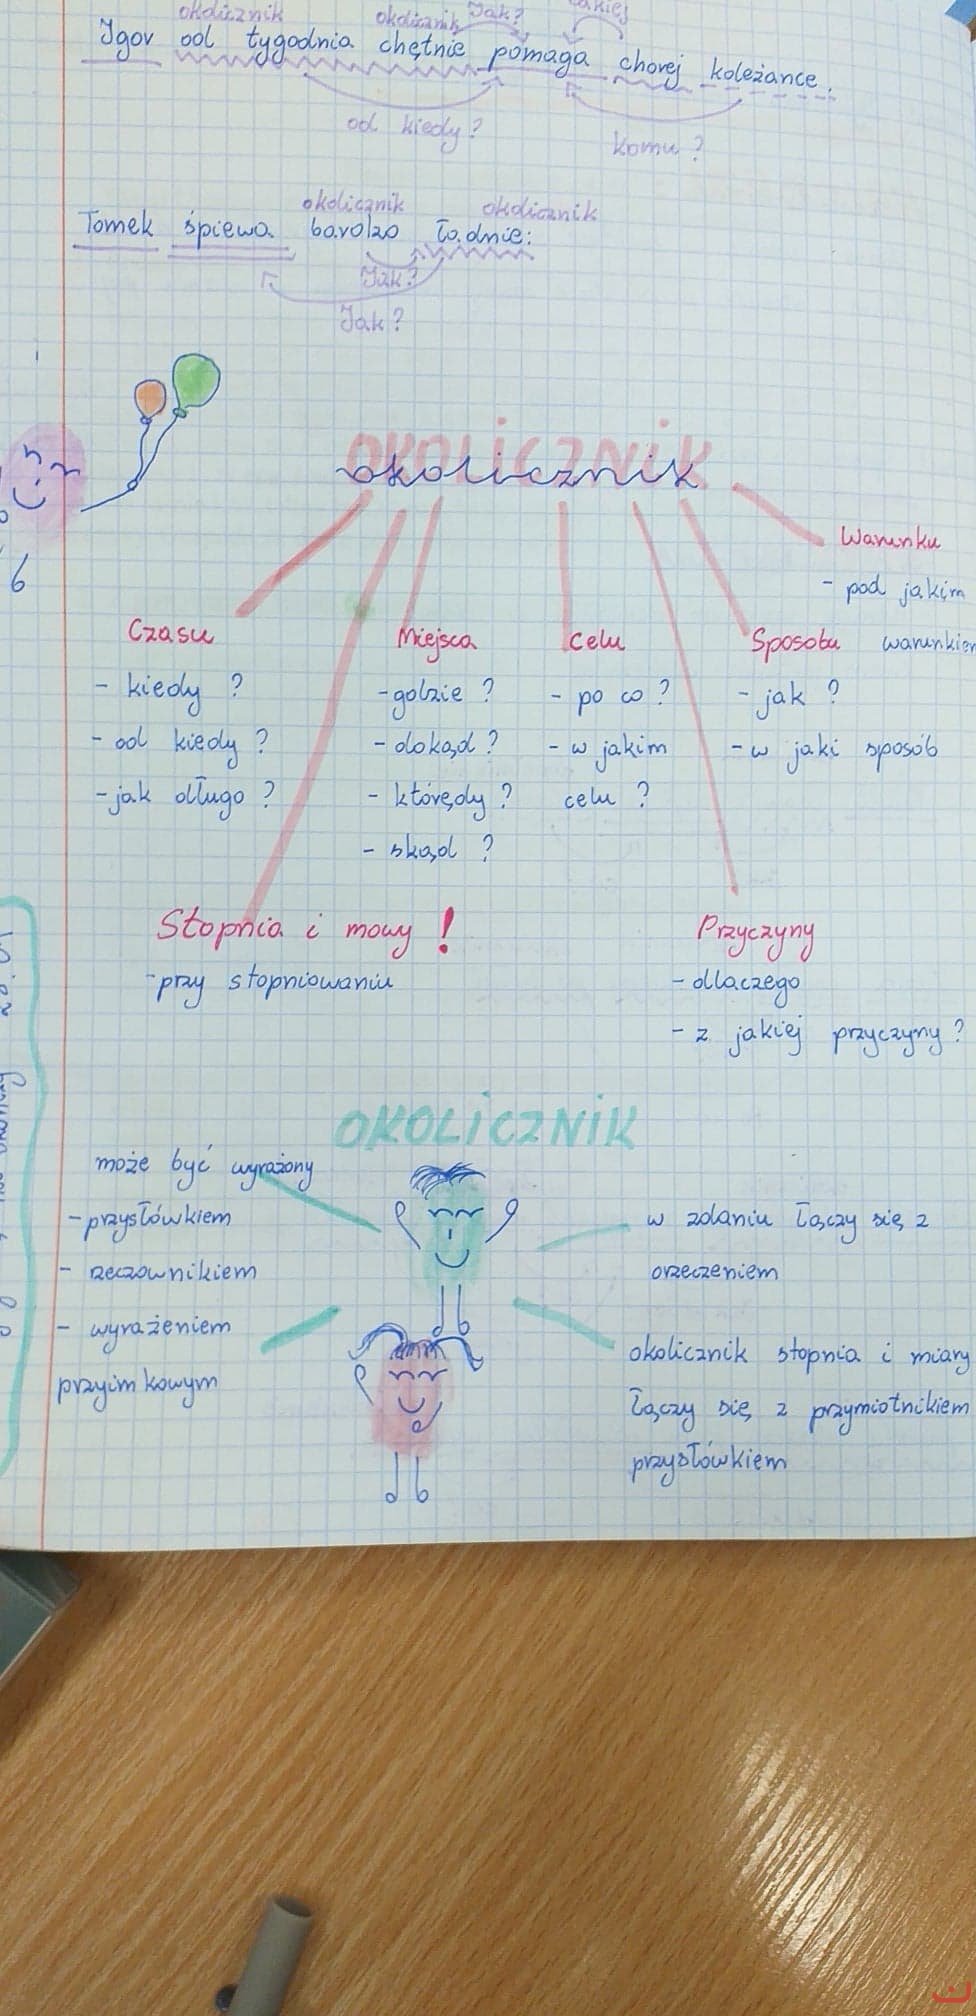 okolicznik okolicznik Jak?
Igor od tygodnia chętnie pomaga chorej koleżance.
od kiedy? komu?
okolicznik okolicznik
Tomek śpiewa bardzo ładnie.
Jak?
Jak?
OKOLICZNIK
okolicznik
Warunku
- pod jakim
warunkiem
Czasu
- kiedy ?
- od kiedy ?
- jak długo ?
Miejsca
- gdzie ?
- dokąd ?
- którędy ?
- skąd ?
Celu
- po co ?
- w jakim
celu ?
Sposobu
- jak ?
- w jaki sposób
Stopnia i mowy !
- przy stopniowaniu
Przyczyny
- dlaczego
- z jakiej przyczyny ?
OKOLICZNIK
może być wyrażony
- przysłówkiem
- rzeczownikiem
- wyrażeniem
przyimkowym
w zdaniu łączy się z
orzeczeniem
okolicznik stopnia i miary
łączy się z przymiotnikiem
przysłówkiem